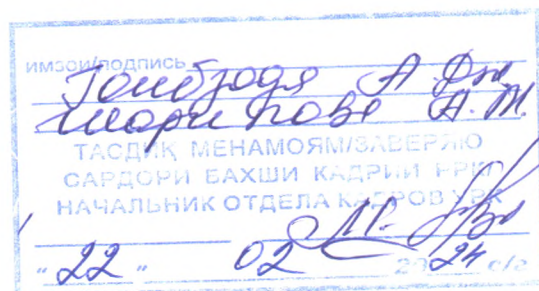 ИМЗОИ/ПОДПИСЬ
Гоибзода А. Дж
Шарипова А. М.
ТАСДИҚ МЕНАМОЯМ/ЗАВЕРЯЮ
САРДОРИ БАХШИ КАДРИИ РРКП
НАЧАЛЬНИК ОТДЕЛА КАДРОВ УРК
"22" 02 2024 с/г